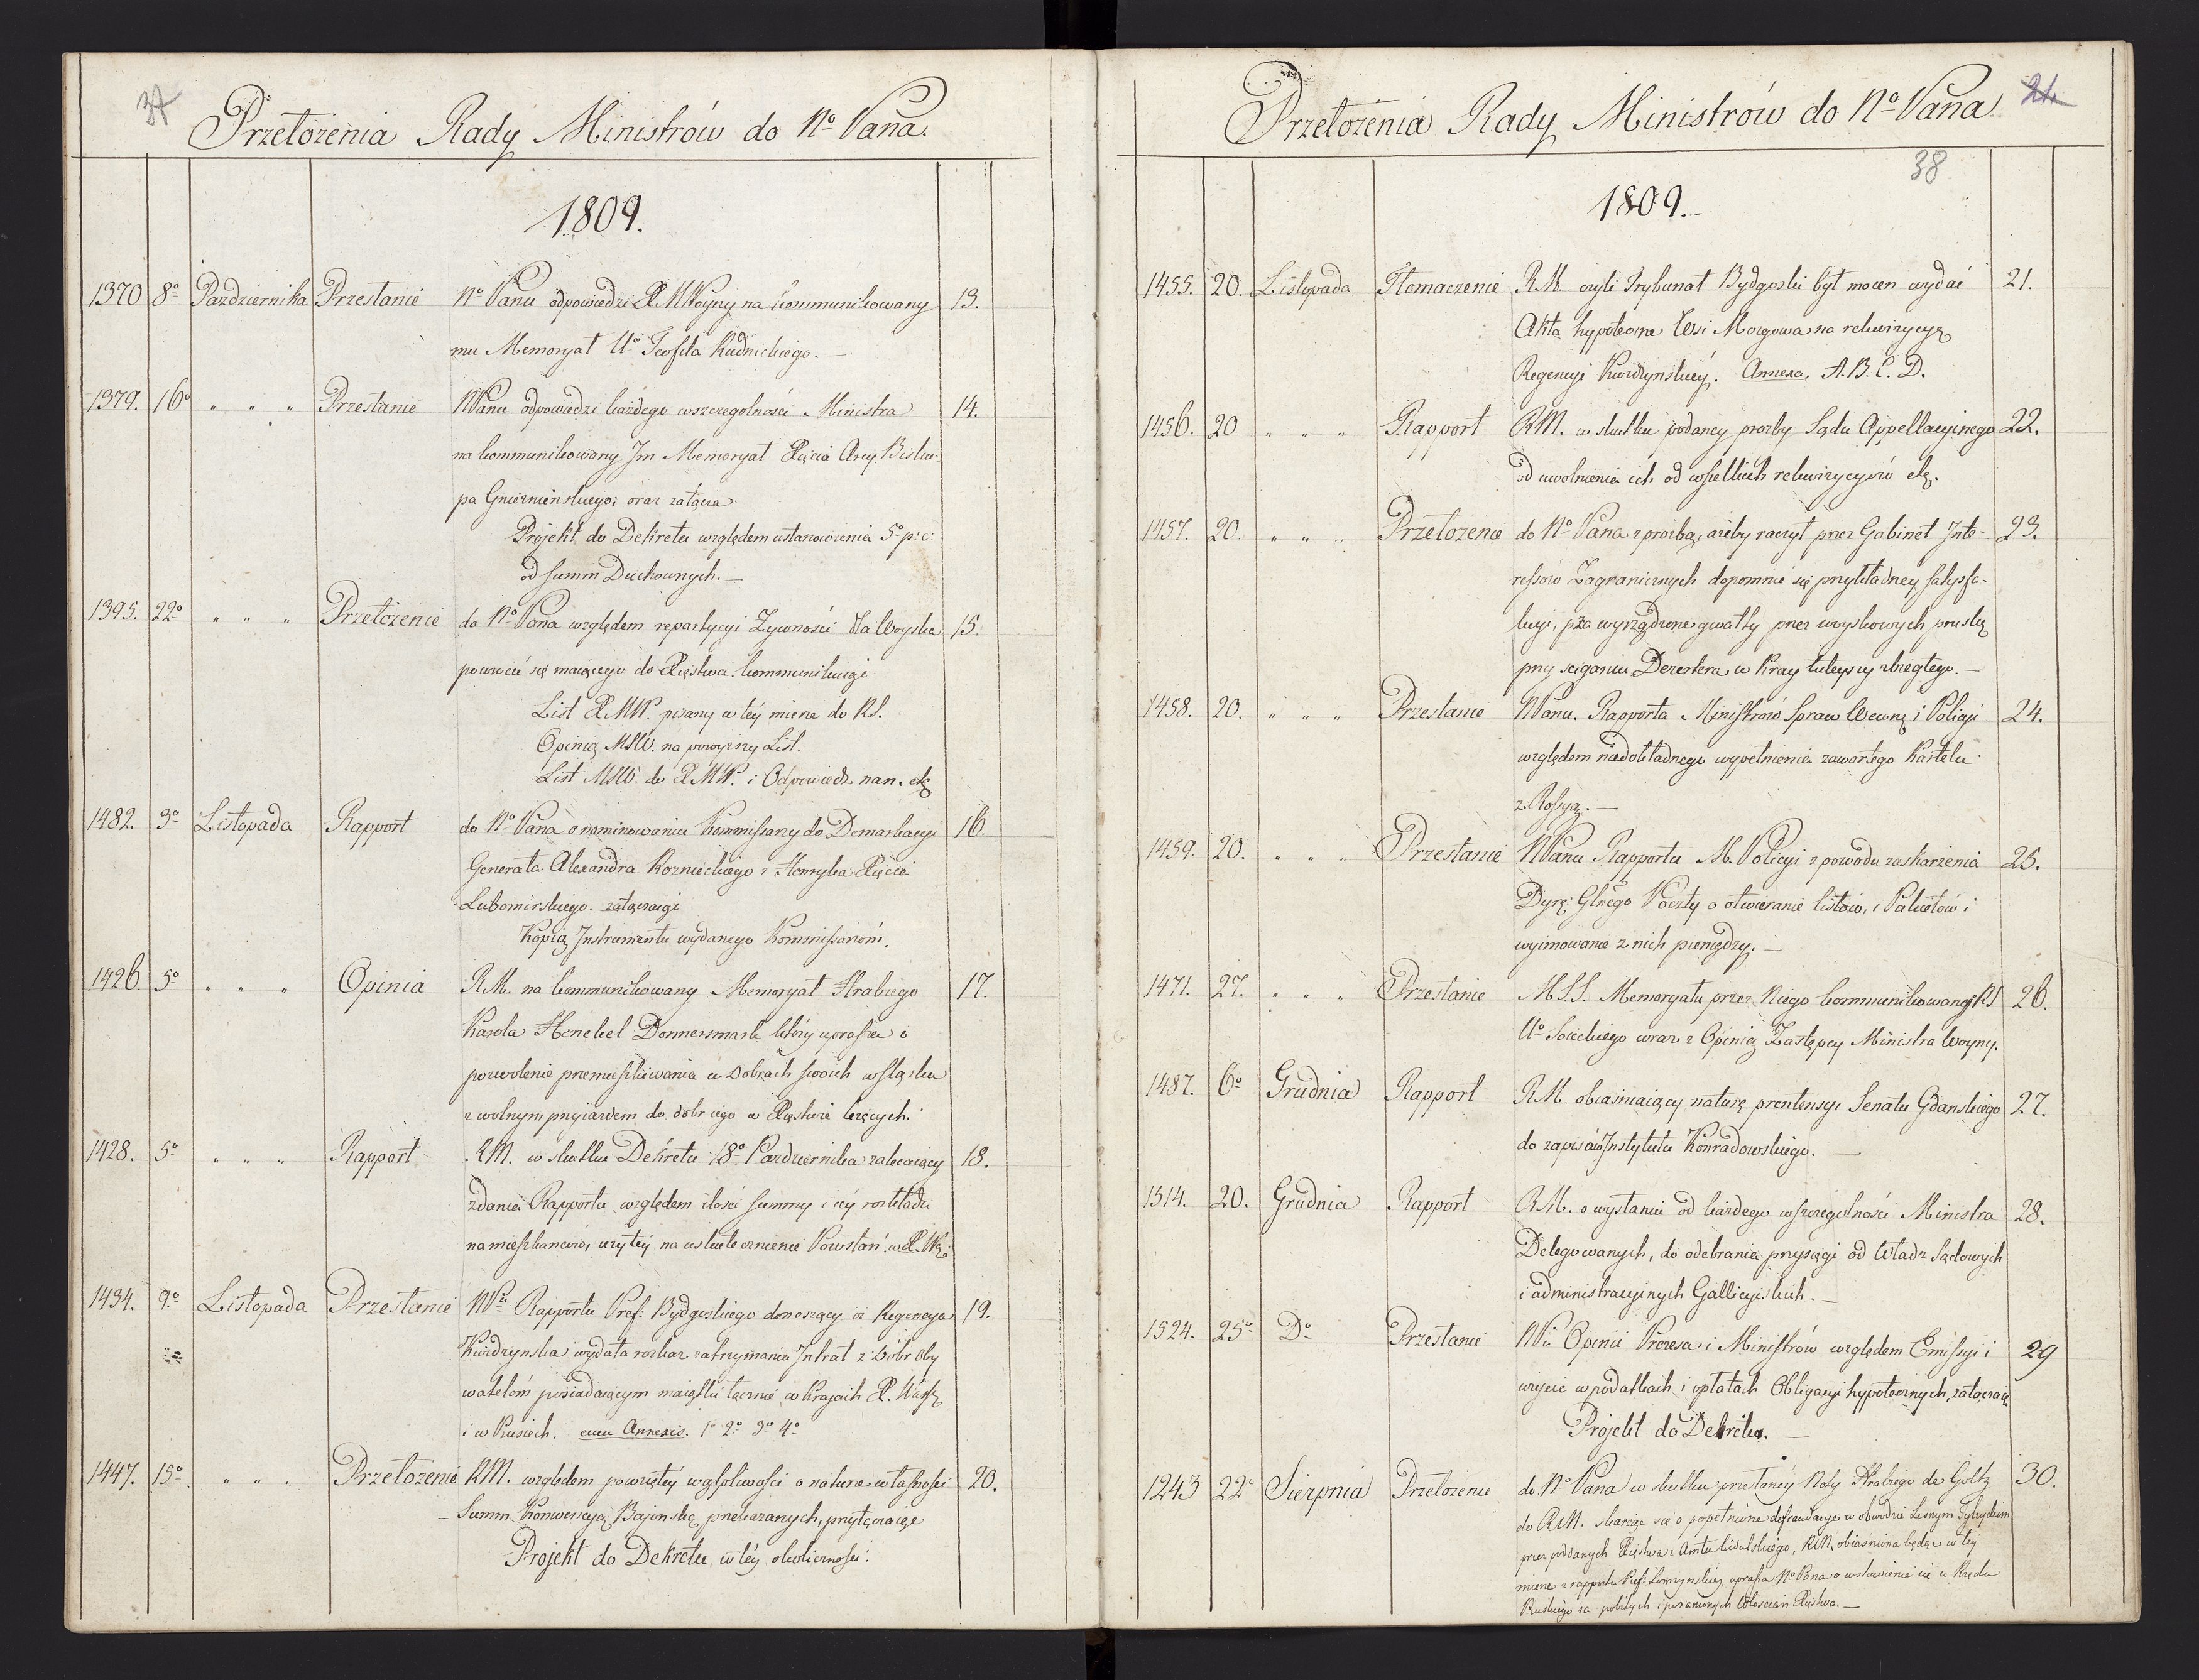 37
Przełożenia Rady Ministrów do No Pana.
1809.
1370 8o Pazdziernika Przesłanie No Panu odpowiedzi X. M Woyny na kommunikowany 13.
mu Memoryał Uo Teofila Rudnickiego. —
1379. 16o " " " Przesłanie NPanu odpowiedzi każdego wszczegolności Ministra 14.
na kommunikowany Jm Memoryał Xięcia Arcy Bisku-
pa Gnieznienskiego; oraz załącza
Projekt do Dekretu względem ustanowienia 5o p: c:
od summ Duchownych. —
1395. 22o " " " Przełożenie do No Pana względem repartycyi Zywności dla Woyska 15.
powrocić się maiącego do Xięstwa. kommunikuiąc
List X MW. pisany w téy mierze do RS.
Opinią MSW. na powyższy List.
List MSW. do X MW. i Odpowiedz nan. etc
1482. 3o Listopada Rapport do No Pana o nominowaniu Kommissarzy do Demarkacyi 16.
Generała Alexandra Roznieckiego i Henryka Xięcia
Lubomirskiego. załączaiąc
Kopią Instrumentu wydanego Kommissarzom.
1426. 5o " " " Opinia RM. na kommunikowany Memoryał Hrabiego 17.
Karola Henckel Donnersmark który uprasza o
pozwolenie przemieszkiwania w Dobrach swoich w Sląsku
z wolnym przyiazdem do dobr iego w Xięstwie leżących.
1428. 5o " " " Rapport RM. w skutku Dekretu 18o Pazdziernika zalecaiący 18.
zdanie Rapportu względem ilości summy i iéy rozkładu
na mieszkancow, użytéy na uskutecznienie Powstań w X. W.
1434. 9o Listopada Przesłanie NPu Rapportu Pref: Bydgoskiego donoszący iż Regencya 19.
Kwidzynska wydała rozkaz zatrzymania Intrat z Dóbr Oby
watelom posiadaiącym maiątki łącznie w Kraiach X. Warsz
i w Prusiech. cum Annexis. 1o 2o 3o 4o
1447. 15o " " " Przełożenie RM. względem powziętéy wątpliwości o naturze własności 20.
Summ Konwencyą Bajonską przekazanych, przyłączaiąc
Projekt do Dekretu w téy okoliczności.
21.
Przełożenia Rady Ministrów do No Pana
38
1809. —
1455. 20. Listopada Tłomaczenie R.M. czyli Trybunał Bydgoski był mocen wydać 21.
Akta hypoteczne Wsi Mozgowa na rekwizycyę
Regencyi Kwidzynskiéy. Annexa, A. B. C. D.
1456. 20 " " " Rapport RM. w skutku podaney prozby Sądu Appellacyinego 22.
od uwolnienia ich od wszelkich rekwizycyów etc.
1457. 20. " " " Przełożenie do No Pana z prozbą, ażeby raczył przez Gabinet Inte- 23.
ressów Zagranicznych dopomnić się przykładney satysfa-
kcyi, za wyrządzone gwałty przez woyskowych pruskich
przy sciganiu Dezertera w Kray tuteyszy zbiegłego. —
1458. 20. " " " Przesłanie NPanu. Rapporta Ministrów Spraw Wewnę i Policyi 24.
względem niedokładnego wypełnienia zawartego Kartelu
z Rossyą. —
1459. 20. " " " Przesłanie NPanu Rapportu M. Policyi z powodu zaskarżenia 25.
Dyre: Glnego Poczty o otwieranie listów, i Pakietów i
wyimowanie z nich pieniędzy. —
1471. 27. " " " Przesłanie M.S.S. Memoryału przez Niego kommunikowanego RS 26.
Uo Soleckiego wraz z Opinią Zastępcy Ministra Woyny.
1487. 6o Grudnia Rapport RM. obiaśniaiący naturę pretensyi Senatu Gdanskiego 27.
do zapisów Instytutu Konradowskiego. —
1514. 20. Grudnia Rapport RM. o wysłaniu od każdego wszczegolności Ministra 28.
Delegowanych, do odebrania przysięgi od Władz Sądowych
i administracyinych Gallicyiskich. —
1524. 25o Do Przesłanie NPu Opinii Prezesa i Ministrów względem Emissyi i 29
użycie w podatkach i opłatach Obligacyi hypotecznych, załączaiąc
Projekt do Dekretu. —
1243 22o Sierpnia Przełożenie do No Pana w skutku przesłanéy Noty Hrabiego de Goltz 30.
do RM. skarżąc się o popełnione defraudacye w obwodzie Lesnym
przez poddanych Xięstwa z Amtu RM. obiasniona będąc w téy
mierze z rapportu Pref: Łomzynskiey, uprasza No Pana o wstawienie się u Rządu
Pruskiego za pobitych i poranionych Włoscian Xięstwa. —